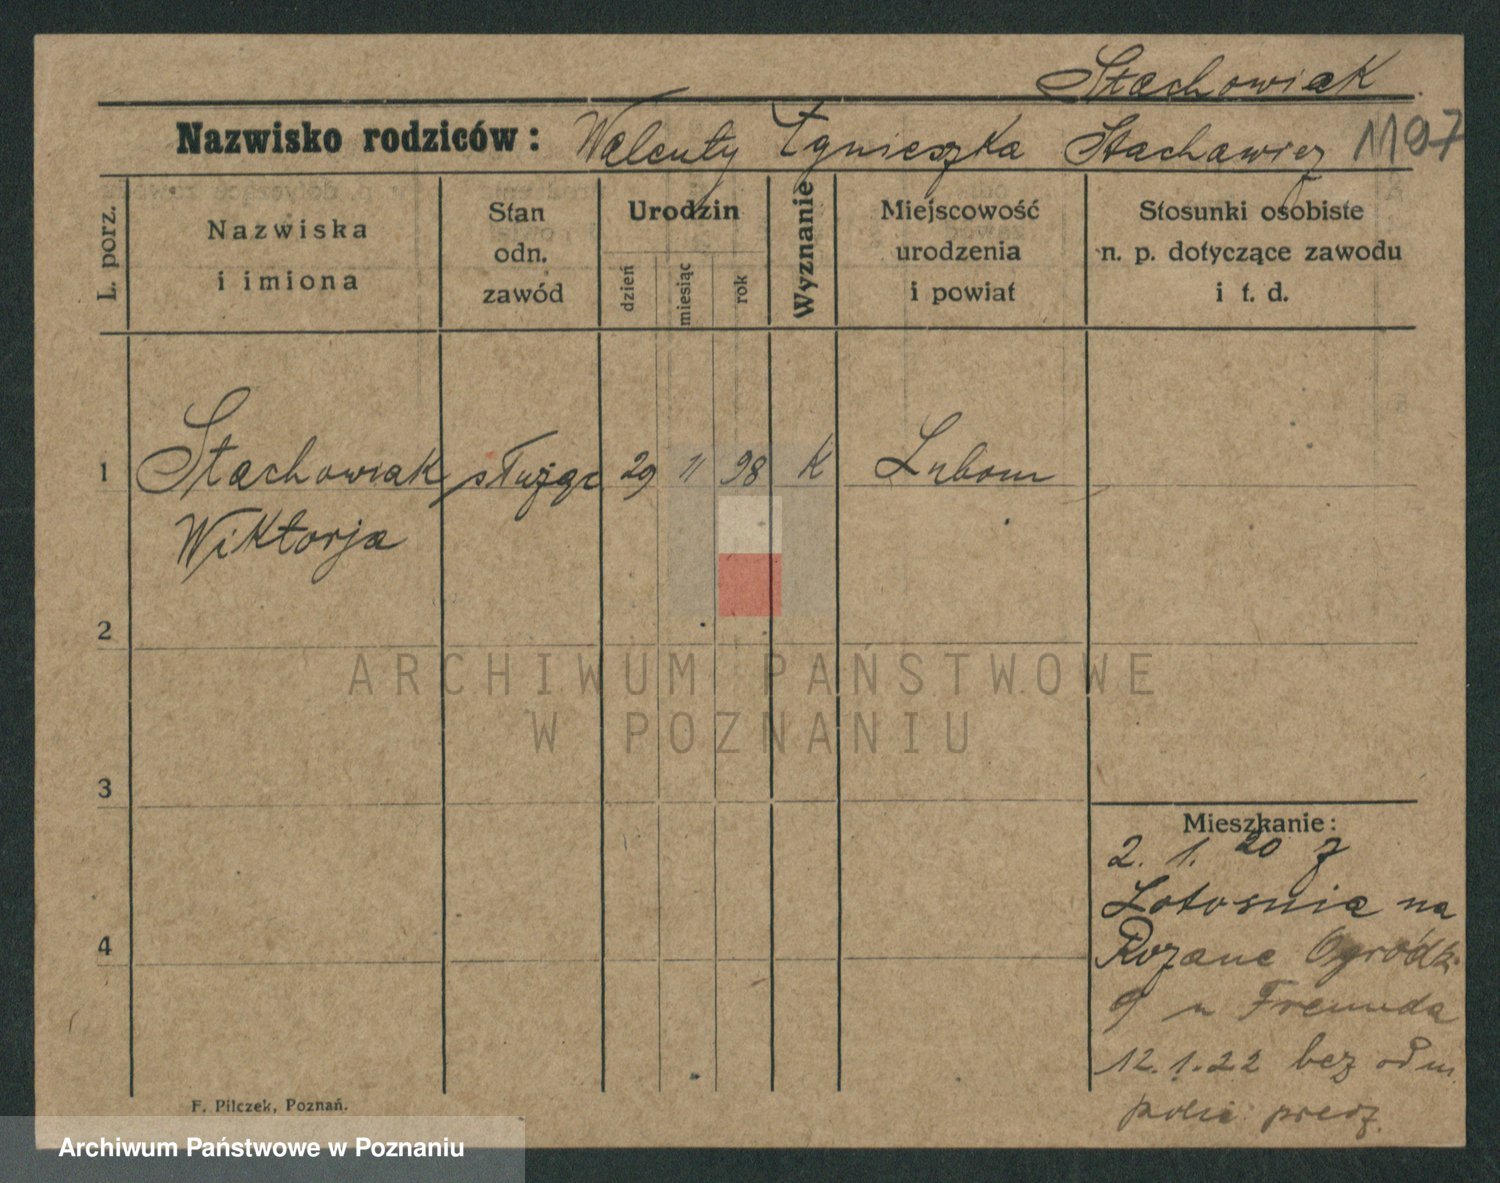 Stachowiak
Nazwisko rodziców: Walenty Agnieszka Stachowicz 1197
L. porz.
Nazwiska
i imiona
Stan
odn.
zawód
Urodzin
dzień
miesiąc
rok
Wyznanie
Miejscowość
urodzenia
i powiat
Stosunki osobiste
n. p. dotyczące zawodu
i t. d.
1 Stachowiak służąc 29 11 98 K Lubom
Wiktorja
2
ARCHIWUM PAŃSTWOWE
W POZNANIU
3
Mieszkanie:
2. 1. 20 z
na
4
Rożane Ogródki
9 u Freunda
12.1.22 bez odm
policji
F. Pilczek, Poznań.
Archiwum Państwowe w Poznaniu